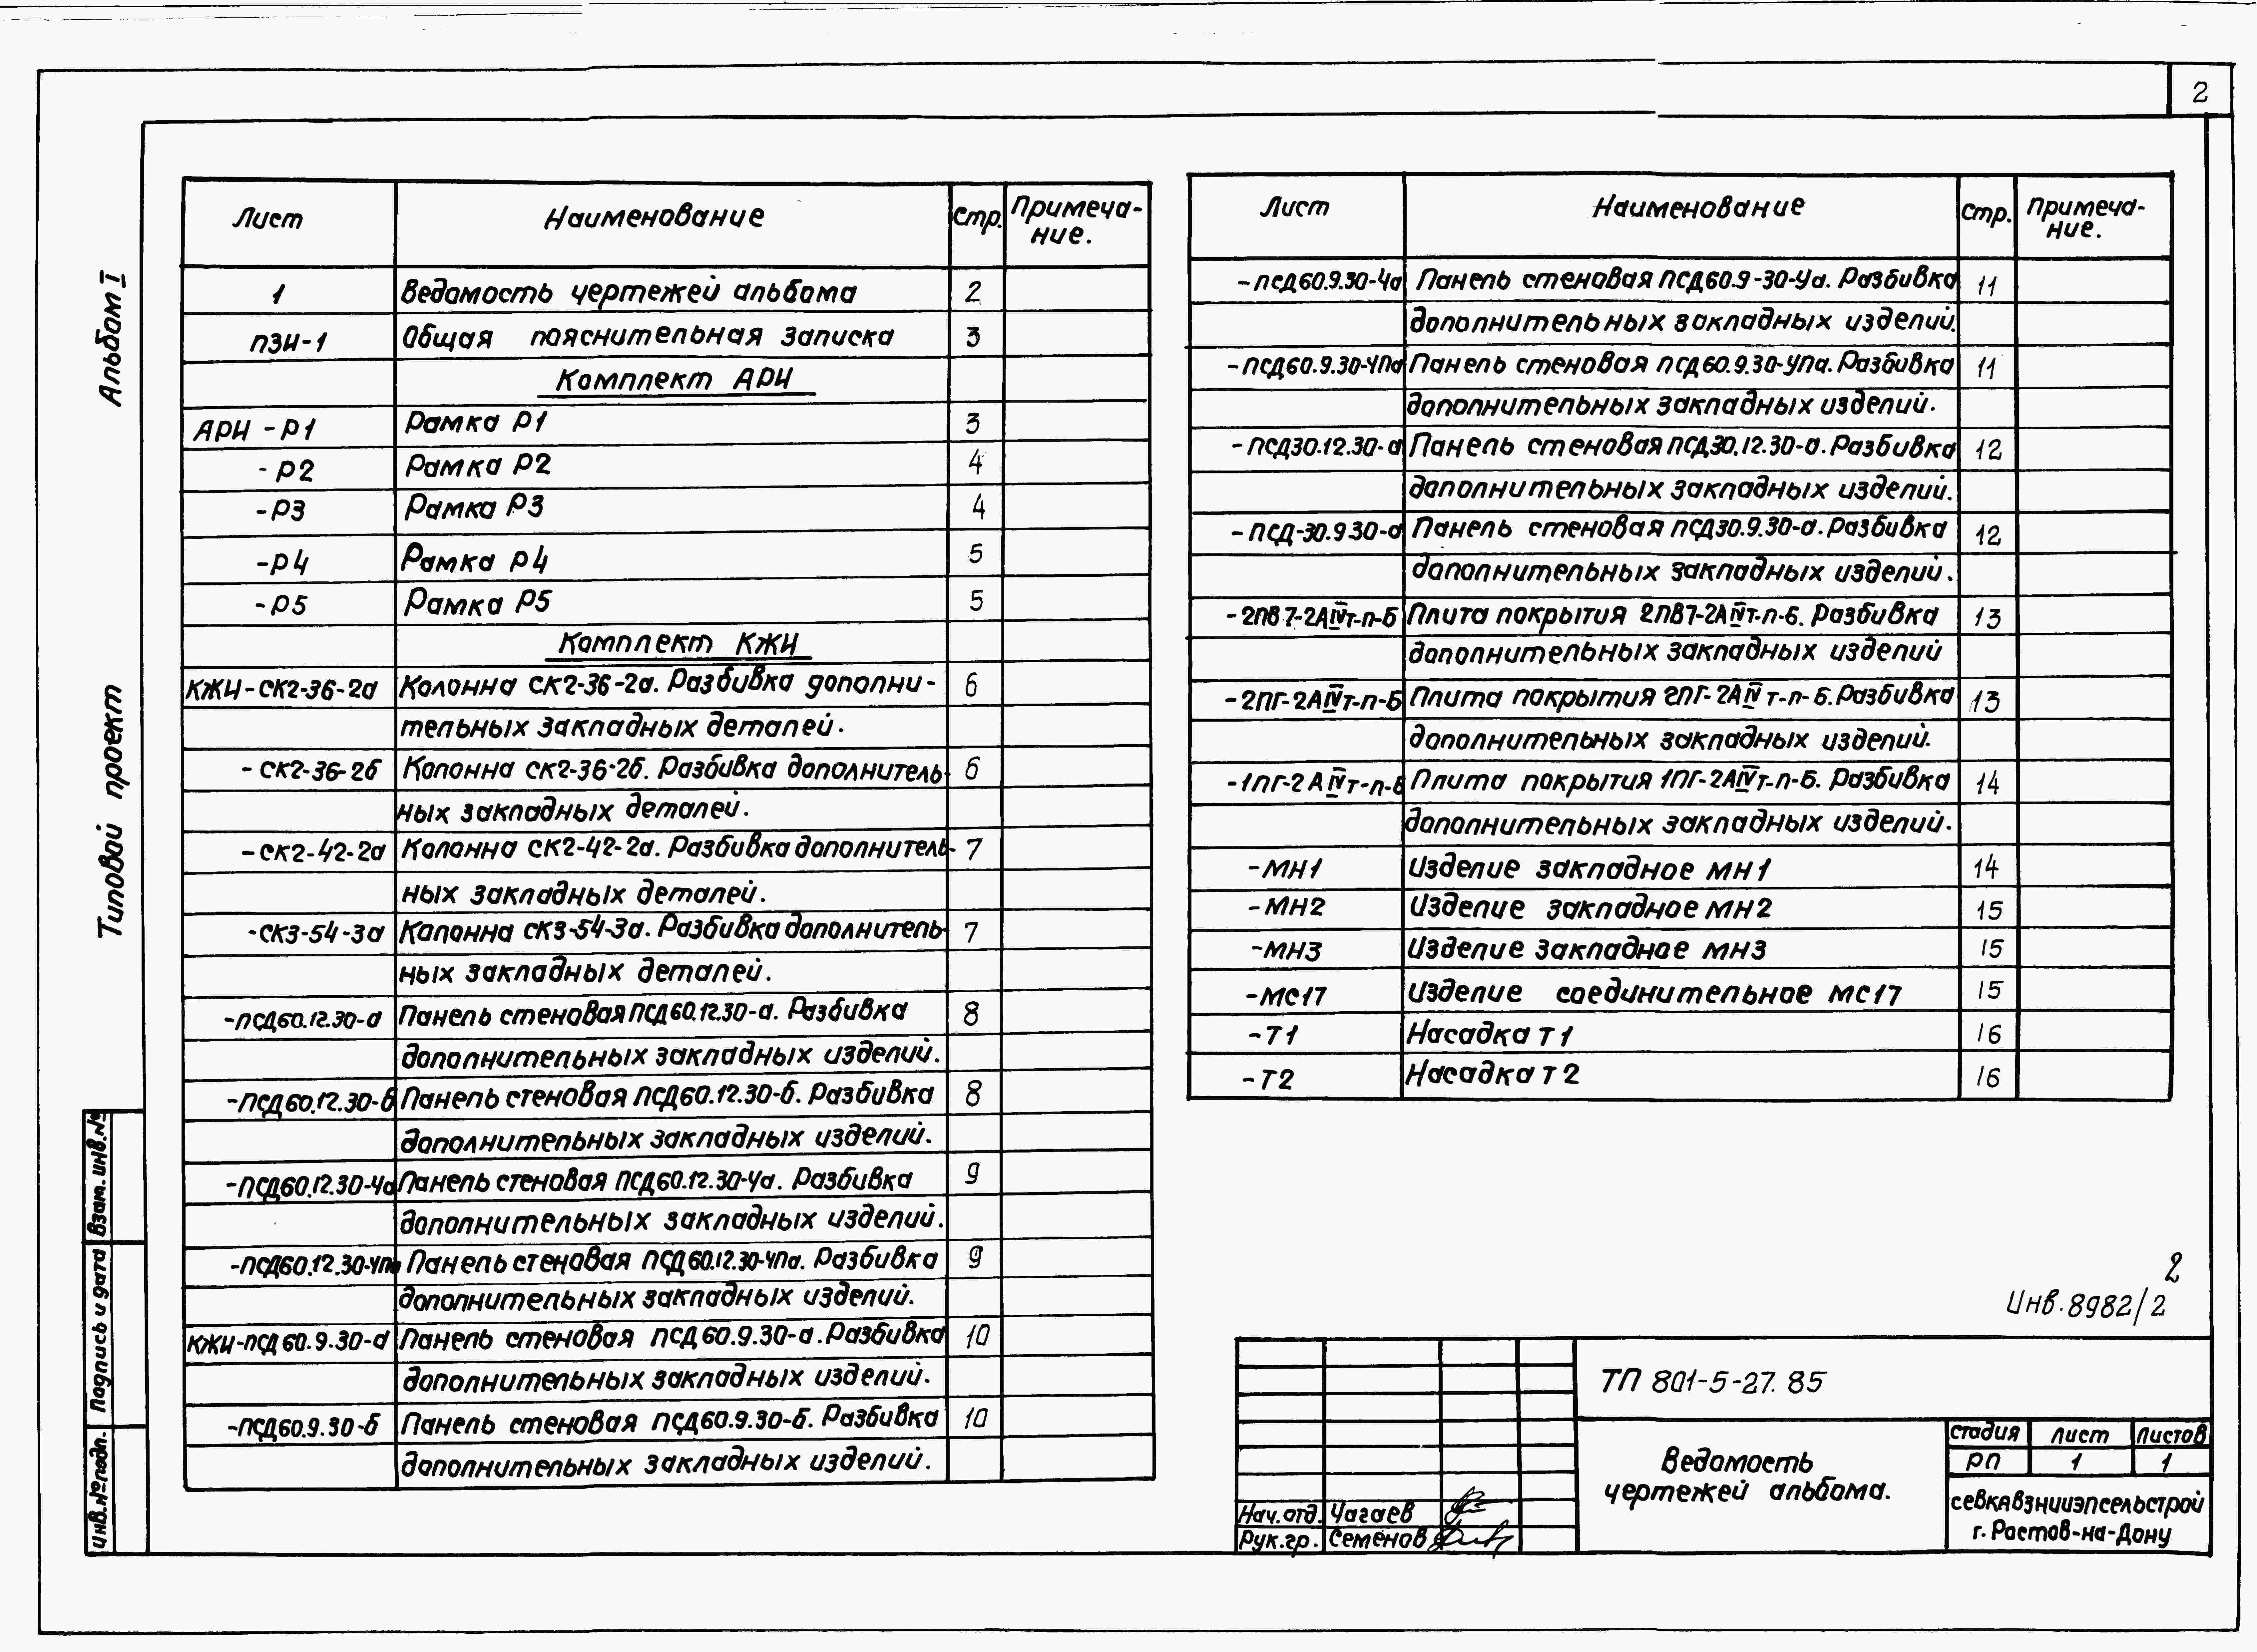 2
Альбом I
Типовой проект
Взам. инв. №
Подпись и дата
Инв. № подл.
Лист Наименование Стр. Примеча-
ние.
1 Ведомость чертежей альбома 2
ПЗИ-1 Общая пояснительная записка 3
Комплект АРИ
АРИ-Р1 Рамка Р1 3
-Р2 Рамка Р2 4
-Р3 Рамка Р3 4
-Р4 Рамка Р4 5
-Р5 Рамка Р5 5
Комплект КЖИ
КЖИ-СК2-36-2а Колонна СК2-36-2а. Разбивка дополни- 6
тельных закладных деталей.
-СК2-36-2б Колонна СК2-36-2б. Разбивка дополнитель- 6
ных закладных деталей.
-СК2-42-2а Колонна СК2-42-2а. Разбивка дополнитель- 7
ных закладных деталей.
-СК3-54-3а Колонна СК3-54-3а. Разбивка дополнитель- 7
ных закладных деталей.
-ПСД60.12.30-а Панель стеновая ПСД60.12.30-а. Разбивка 8
дополнительных закладных изделий.
-ПСД60.12.30-б Панель стеновая ПСД60.12.30-б. Разбивка 8
дополнительных закладных изделий.
-ПСД60.12.30-Уа Панель стеновая ПСД60.12.30-Уа. Разбивка 9
дополнительных закладных изделий.
-ПСД60.12.30-УПа Панель стеновая ПСД60.12.30-УПа. Разбивка 9
дополнительных закладных изделий.
КЖИ-ПСД60.9.30-а Панель стеновая ПСД60.9.30-а. Разбивка 10
дополнительных закладных изделий.
-ПСД60.9.30-б Панель стеновая ПСД60.9.30-б. Разбивка 10
дополнительных закладных изделий.
Лист Наименование Стр. Примеча-
ние.
-ПСД60.9.30-Уа Панель стеновая ПСД60.9-30-Уа. Разбивка 11
дополнительных закладных изделий.
-ПСД60.9.30-УПа Панель стеновая ПСД60.9.30-УПа. Разбивка 11
дополнительных закладных изделий.
-ПСД30.12.30-а Панель стеновая ПСД30.12.30-а. Разбивка 12
дополнительных закладных изделий.
-ПСД-30.9.30-а Панель стеновая ПСД30.9.30-а. Разбивка 12
дополнительных закладных изделий.
-2ПВ7-2АIVт-п-Б Плита покрытия 2ПВ7-2АIVт-п-Б. Разбивка 13
дополнительных закладных изделий
-2ПГ-2АIVт-п-Б Плита покрытия 2ПГ-2АIVт-п-Б. Разбивка 13
дополнительных закладных изделий.
-1ПГ-2АIVт-п-Б Плита покрытия 1ПГ-2АIVт-п-Б. Разбивка 14
дополнительных закладных изделий.
-МН1 Изделие закладное МН1 14
-МН2 Изделие закладное МН2 15
-МН3 Изделие закладное МН3 15
-МС17 Изделие соединительное МС17 15
-Т1 Насадка Т1 16
-Т2 Насадка Т2 16
2
Инв. 8982/2
ТП 801-5-27.85
Ведомость
чертежей альбома.
стадия лист листов
РП 1 1
СЕВКАВЗНИИЭПСЕЛЬСТРОЙ
г. Ростов-на-Дону
Нач. отд. Чагаев
Рук. гр. Семенов